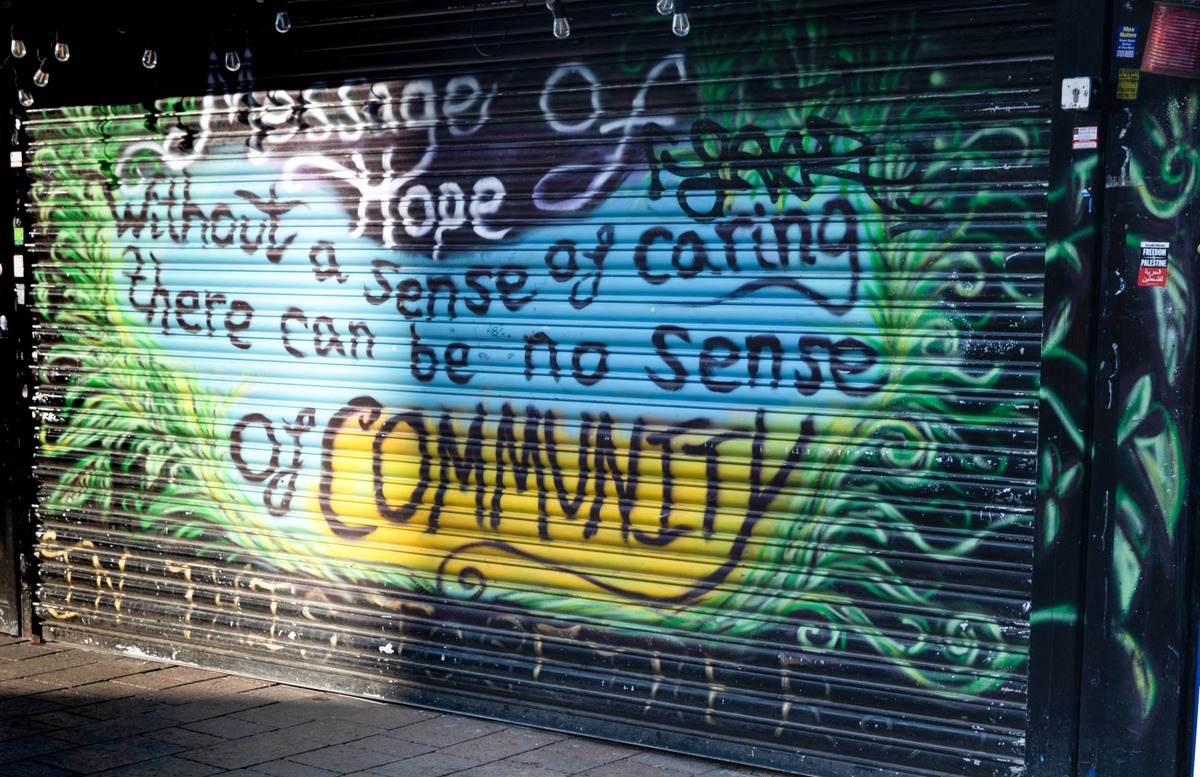 Message Of
Hope
Without a sense of caring
there can be no sense
of COMMUNITY
FREEDOM
PALESTINE
الحرية
لفلسطين